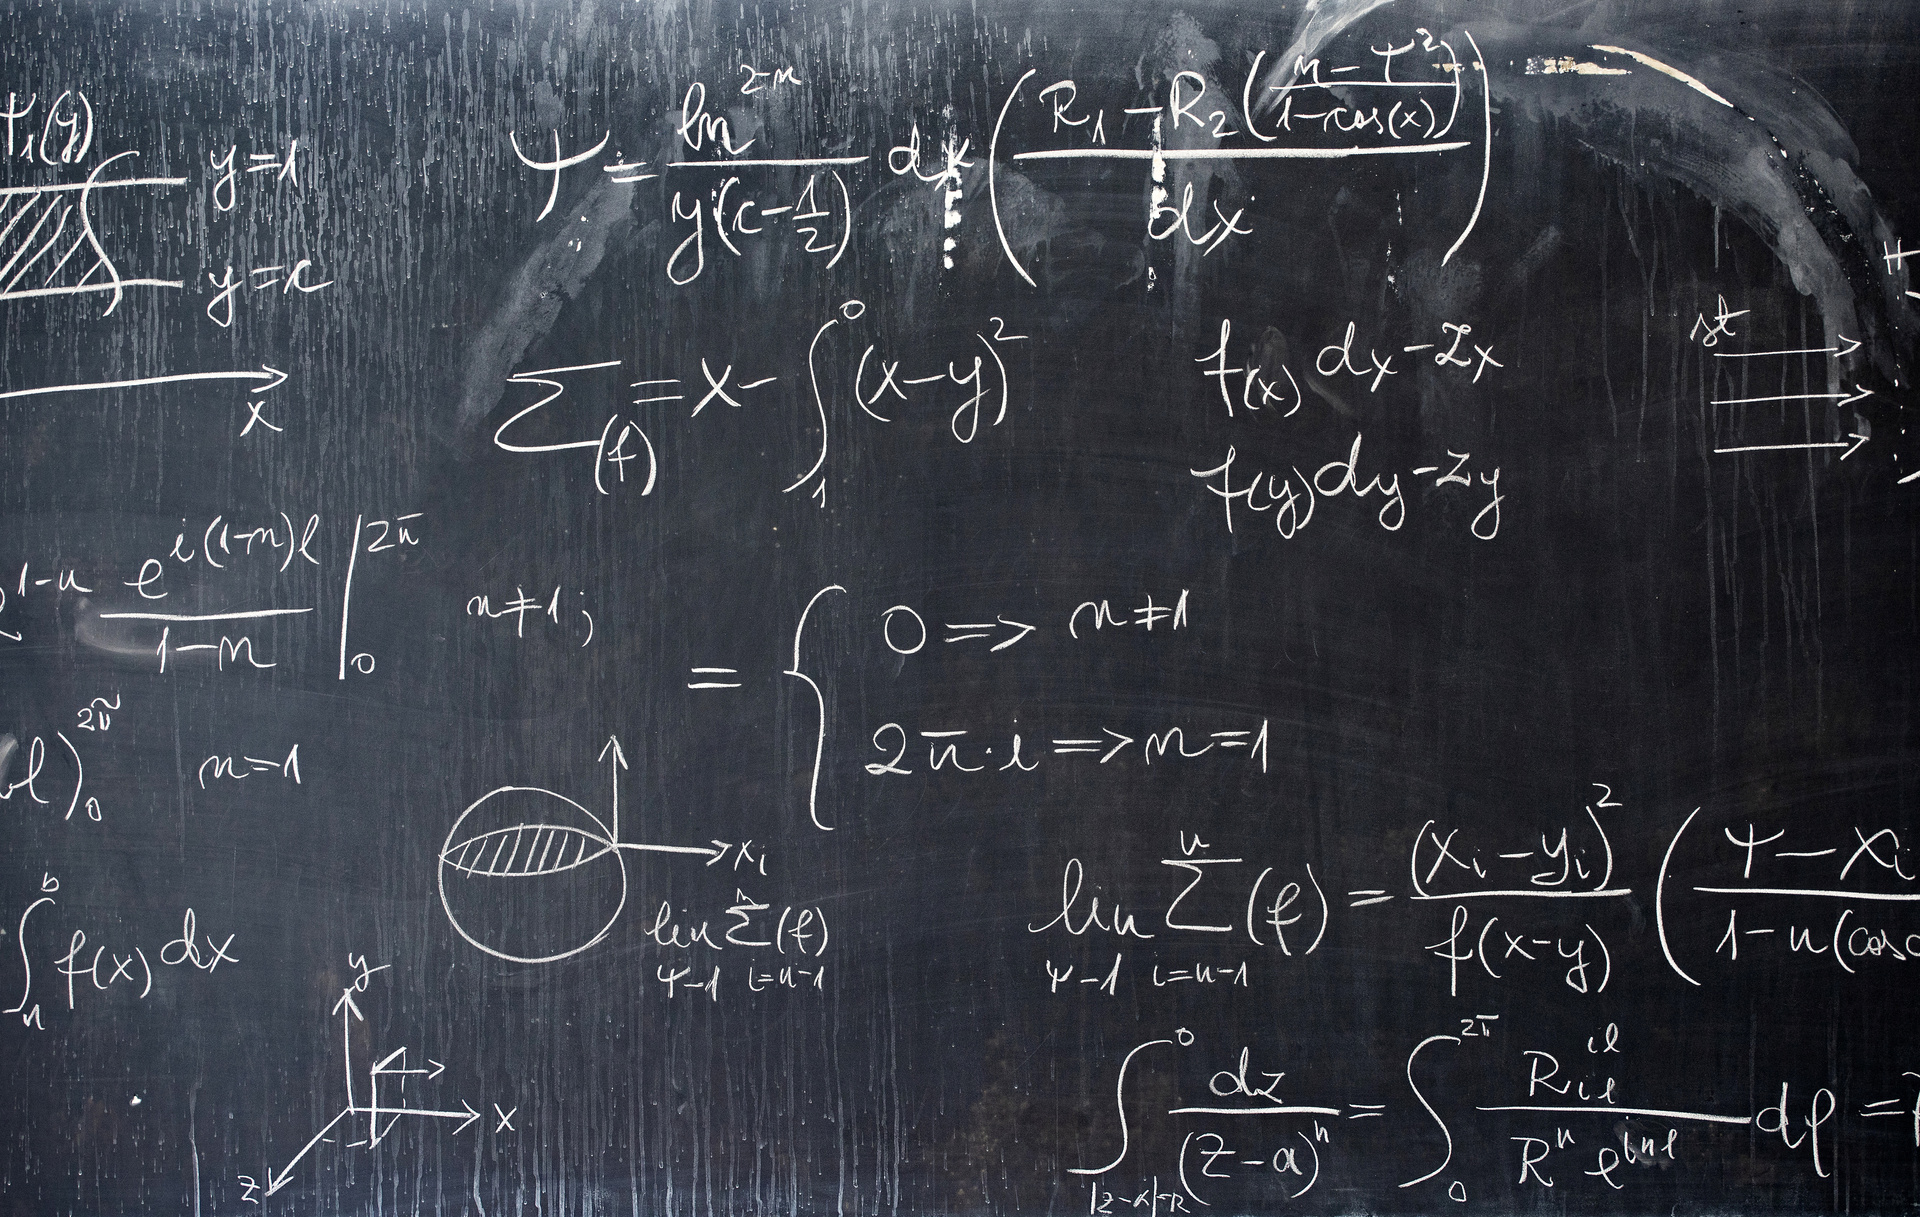 Ψ = ln^{2-n} / y(x-1/2) dx ( R₁-R₂((n-Ψ²)/(1-cos(x))) / dx )
Ψ₁(y)
y=1
y=x
x
Σ_(f) = x- ∫₁⁰ (x-y)²
f(x) dx-Zx
f(y) dy-Zy
st
1-n e^{i(1-n)φ} / 1-n |₀^{2π} n≠1;
= { 0 => n≠1
2π·i => n=1
φ)₀^{2π} n=1
x_i
lim_{Ψ-1} Σ_{i=n-1}^{n} (f)
lim_{Ψ-1} Σ_{i=n-1}^{n} (f) = (x_i-y_i)² / f(x-y) ( Ψ-X_i / 1-n(cos
∫_n^b f(x) dx
y
x
z
∫_{|z-α|=R}^0 dz / (z-a)^n = ∫₀^{2π} R_{iφ}^{iφ} / R^n e^{inφ} dφ =